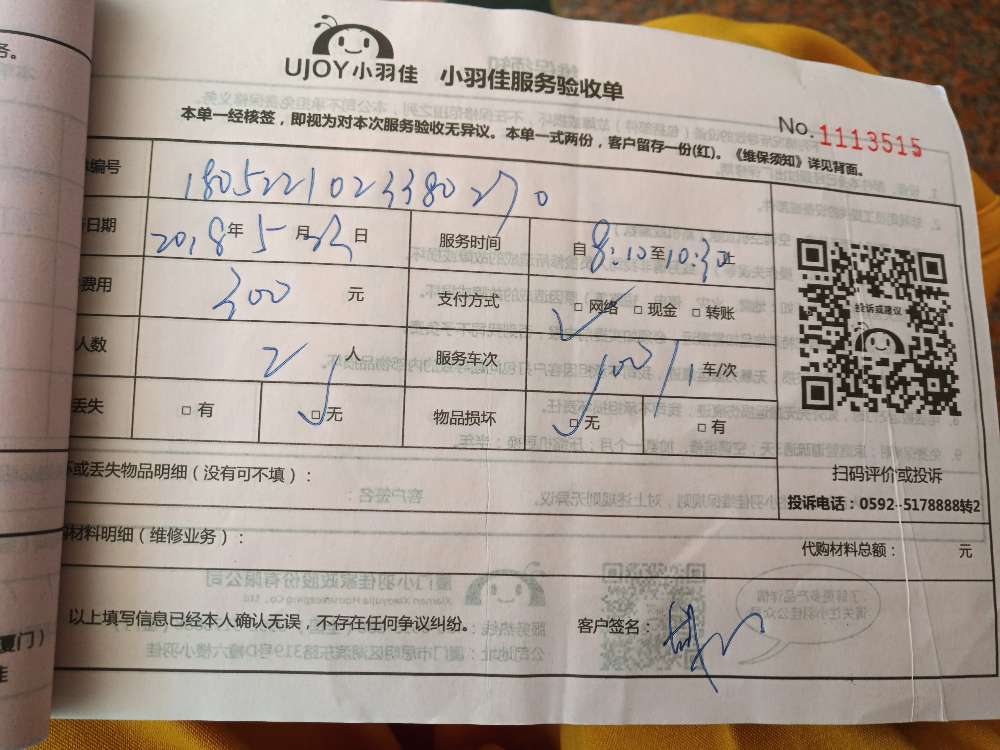 务。
UJOY小羽佳 小羽佳服务验收单
本单一经核签，即视为对本次服务验收无异议。本单一式两份，客户留存一份(红)。《维保须知》详见背面。
No. 1113515
编号 1805221023380270
日期 2018年5月22日 服务时间 自8:10至10:30止
费用 300元 支付方式 □网络 □现金 □转账
人数 2人 服务车次 1车/次
丢失 □有 □无 物品损坏 □无 □有
投诉或建议
扫码评价或投诉
投诉电话：0592-5178888转2
坏或丢失物品明细（没有可不填）：
材料明细（维修业务）： 代购材料总额： 元
以上填写信息已经本人确认无误，不存在任何争议纠纷。 客户签名：
厦门）
佳